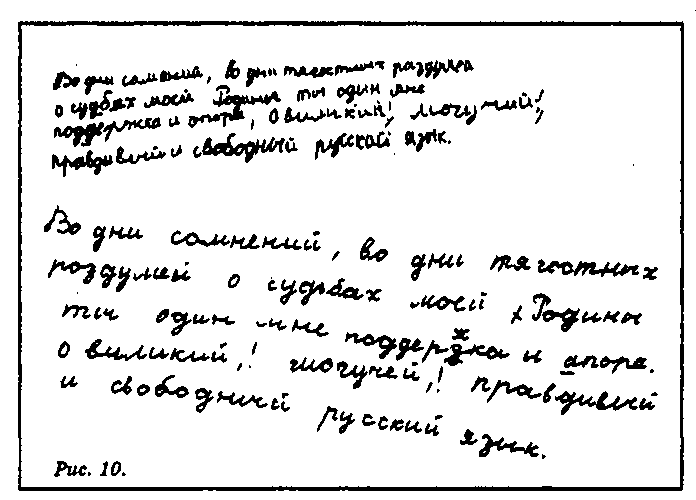 Во дни сомнений, во дни тягостных раздумея
о судбах моей Родины ты один мне
поддержка и опора, О виликий! могучий!,
правдивый и свободный русский язык.
Во дни сомнений, во дни тягостных
роздумей о судьбах моей Родины
ты один мне поддержка и апора.
О виликий,! могучей,! правдивый
и свободний русский язык.
Рис. 10.